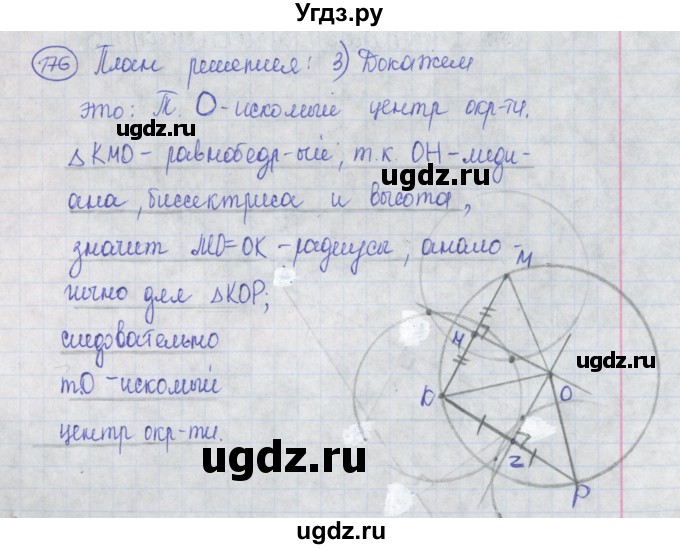 Угдз.ру
176 План решения: 3) Докажем
это: Т. О - искомый центр окр-ти.
△KMO - равнобедр-ый, т.к. OH - меди-
ана, биссектриса и высота,
значит MO=OK - радиусы, анало-
гично для △KOP;
следовательно
тО - искомый
центр окр-ти.
M
H
O
K
Z
P
ugdz.ru
ugdz.ru
ugdz.ru
ugdz.ru
ugdz.ru
ugdz.ru
ugdz.ru
ugdz.ru